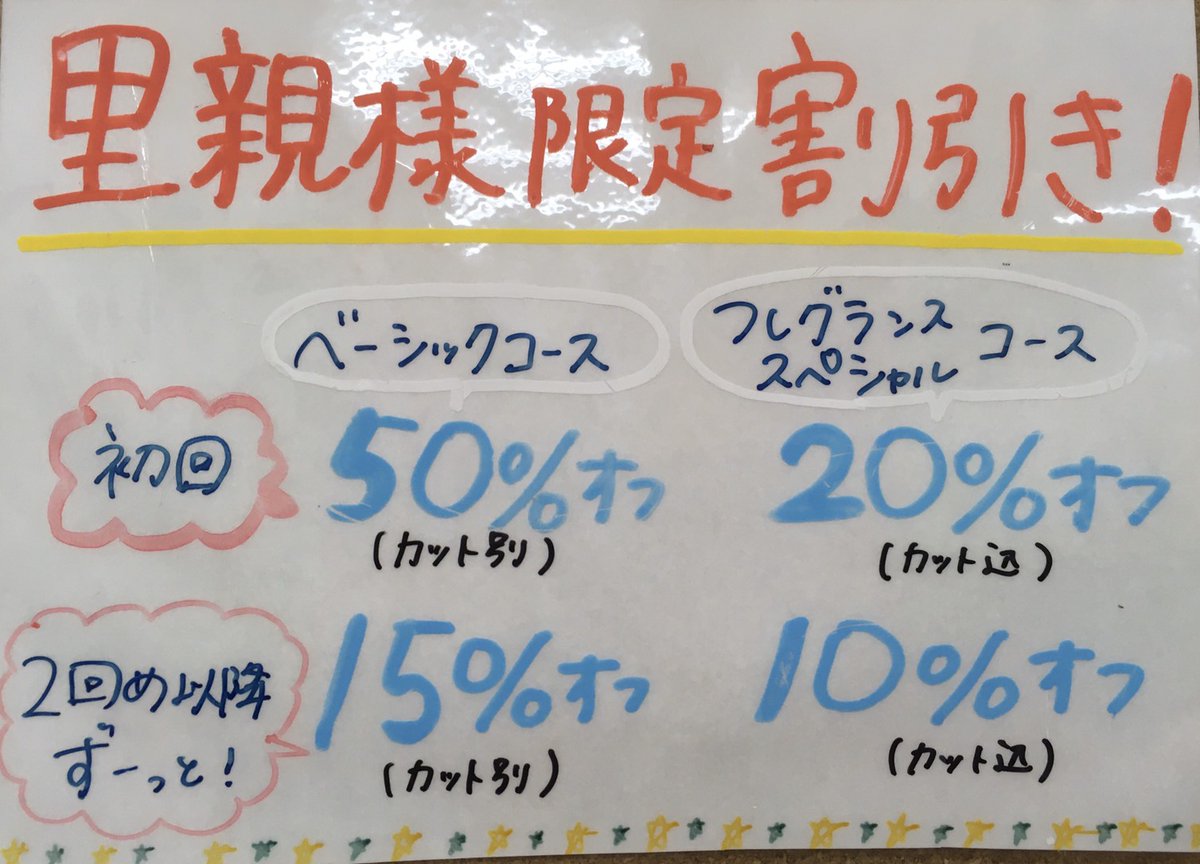 里親様限定割引き!
ベーシックコース
フレグランス
スペシャル コース
初回
50%オフ
(カット別)
20%オフ
(カット込)
2回め以降
ずーっと!
15%オフ
(カット別)
10%オフ
(カット込)